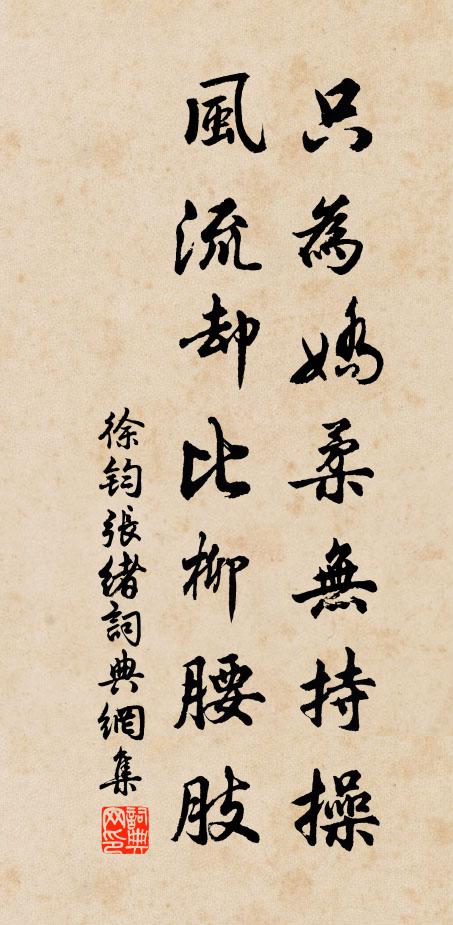 只為嬌柔無持操
風流却比柳腰肢
徐鈞張緒詞典網集
詞典网印